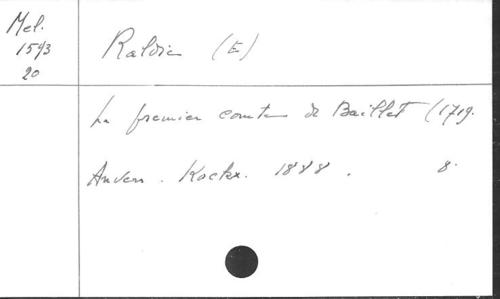 Mel.
1593
20
Raldic (E)
Le premier comte de Baillet (1719.
Anvers. Kockx. 1888. 8.